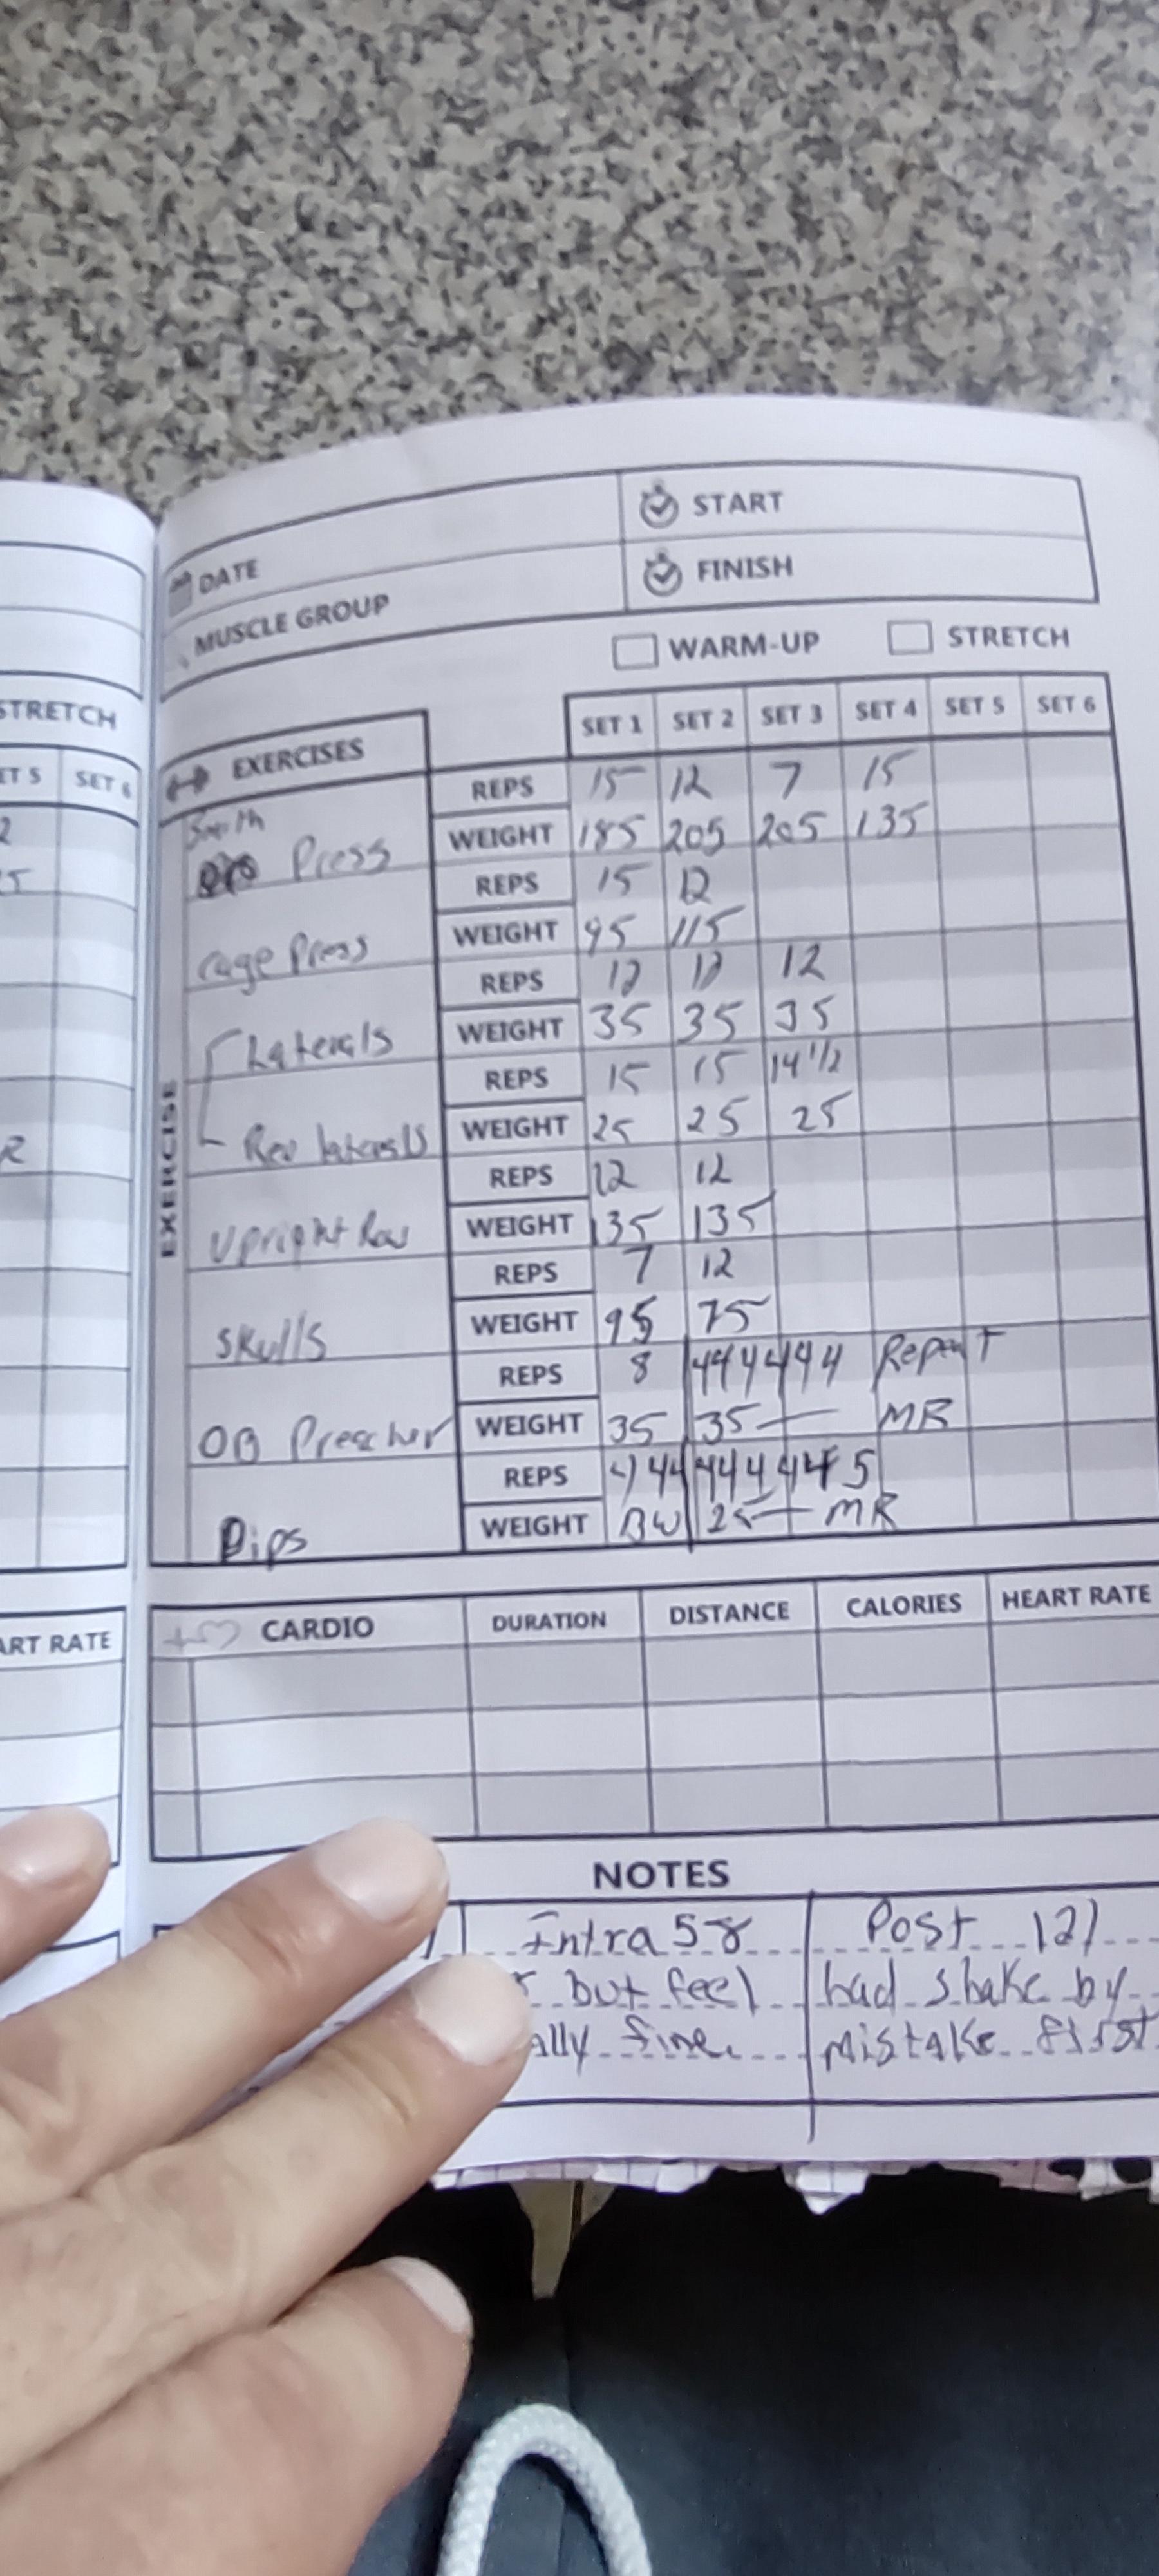 START
DATE
FINISH
MUSCLE GROUP
WARM-UP STRETCH
STRETCH
SET 1 SET 2 SET 3 SET 4 SET 5 SET 6
EXERCISES
ET 5 SET 6
EXERCISE
Smith Press
REPS 15 12 7 15
WEIGHT 185 205 205 135
cage Press
REPS 15 12
WEIGHT 95 115
Laterals
REPS 12 12 12
WEIGHT 35 35 35
Rev laterals
REPS 15 15 14 1/2
WEIGHT 25 25 25
Upright Row
REPS 12 12
WEIGHT 135 135
Skulls
REPS 7 12
WEIGHT 95 75
OB Preacher
REPS 8 444444 Repeat
WEIGHT 35 35 MR
Dips
REPS 444 444 44 5
WEIGHT BW 25 MR
CARDIO DURATION DISTANCE CALORIES HEART RATE
ART RATE
NOTES
Intra 58 Post 121
but feel had shake by
ally fine. mistake first